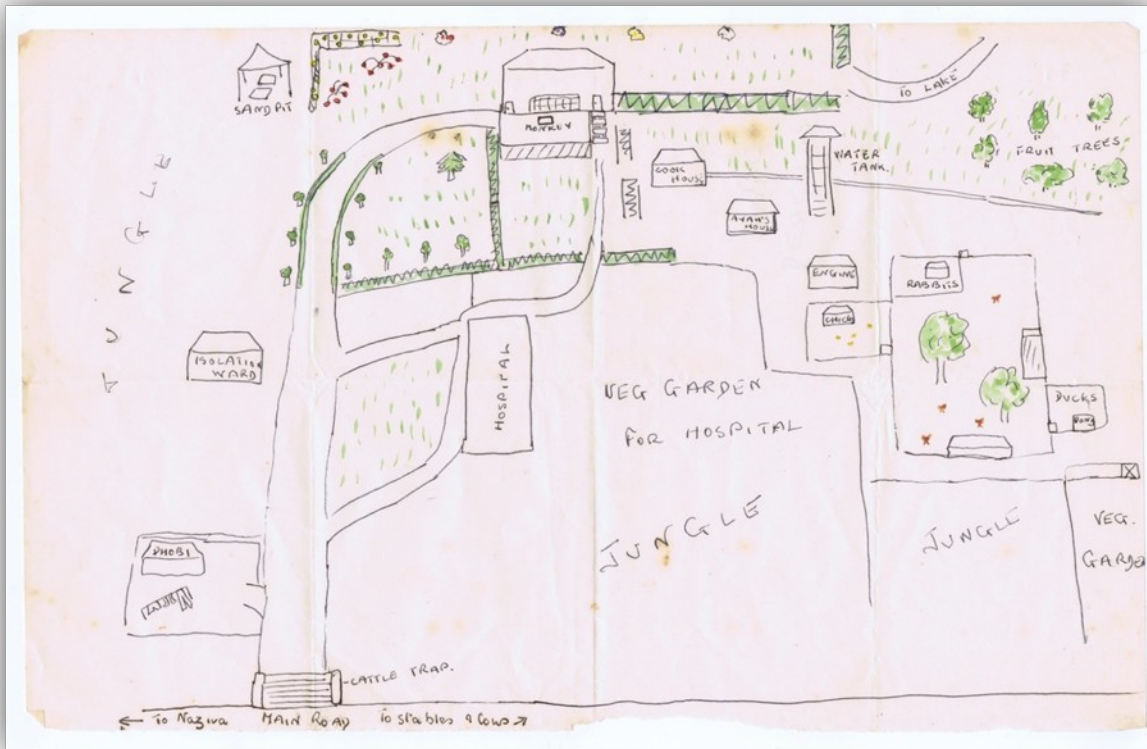 SANDPIT
MONKEY
TO LAKE
FRUIT TREES
WATER
TANK.
COOK
HOUSE
AYAH'S
HOUSE
JUNGLE
ENGINE
RABBIES
CHICKS
ISOLATION
WARD
HOSPITAL
VEG GARDEN
FOR HOSPITAL
DUCKS
JUNGLE
JUNGLE
VEG.
GARDEN
DHOBI
CATTLE TRAP.
← To Nazira MAIN ROAD To stables & Cows ↗